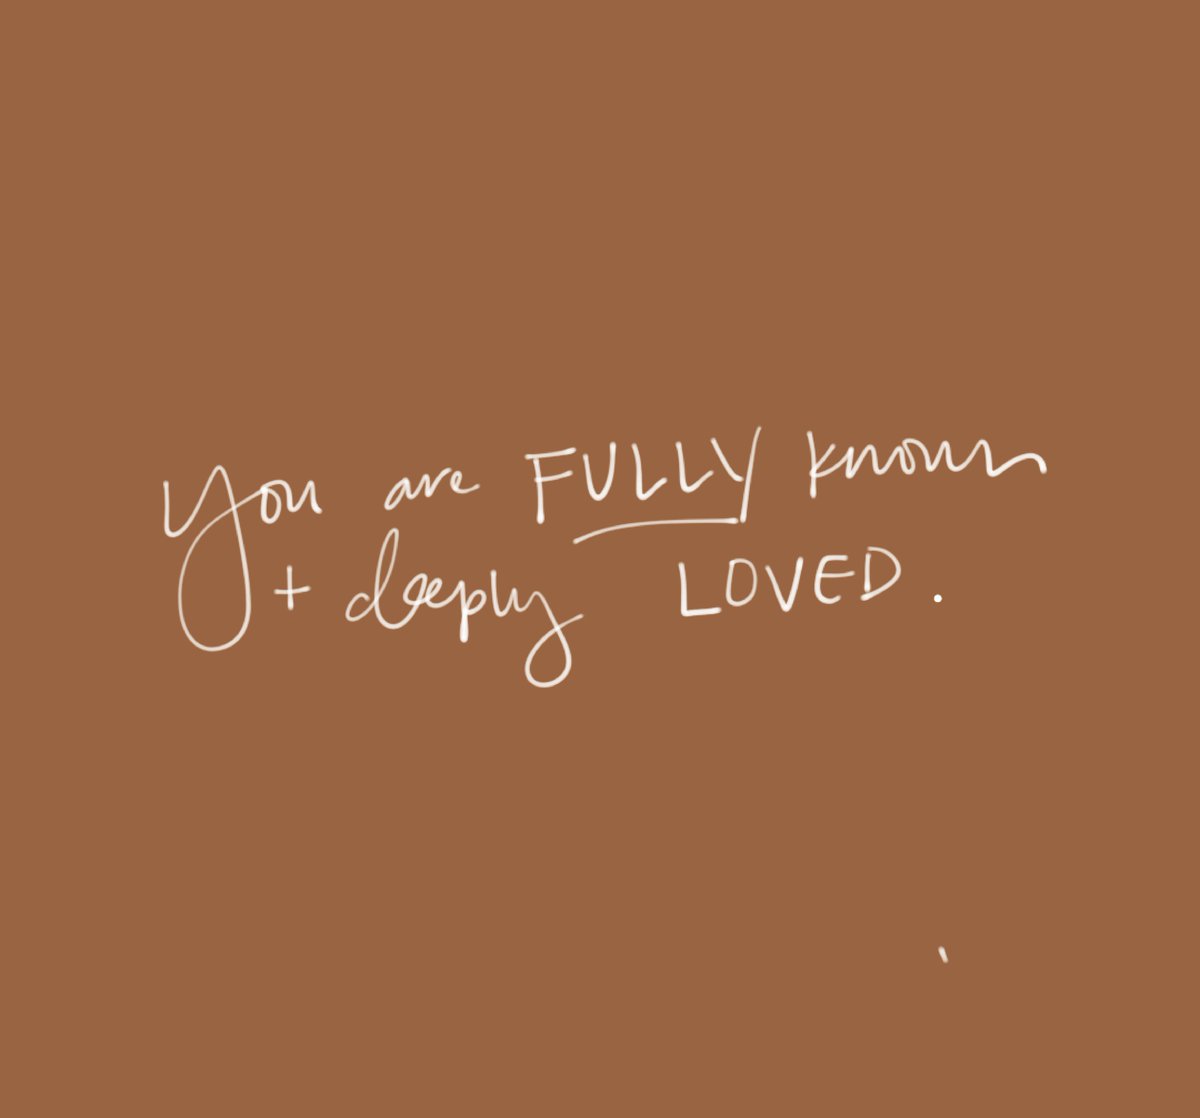 You are FULLY known
+ deeply LOVED.